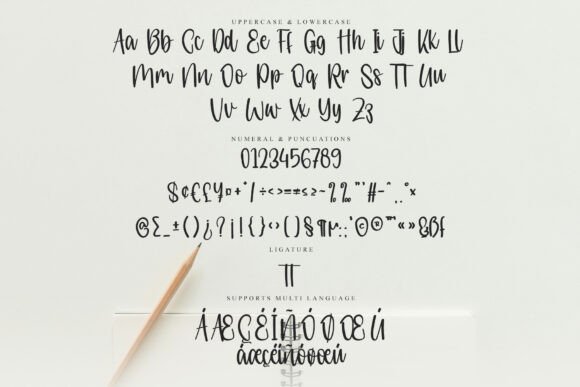 UPPERCASE & LOWERCASE
Aa Bb Cc Dd Ee Ff Gg Hh Ii Jj Kk Ll
Mm Nn Oo Pp Qq Rr Ss TT Uu
Vv Ww Xx Yy Zz
NUMERAL & PUNCUATIONS
0123456789
$¢€£¥¤+*/÷<>=≠≤≥~%‰"'#-^¸.°×
@Σ_±()¿?¡!{}‹›()§¶µ:;'©®™"«»&ßſ
LIGATURE
TT
SUPPORTS MULTI LANGUAGE
ÁÆÇÉÍÑÓØŒÚ
áæçéíñóøœú